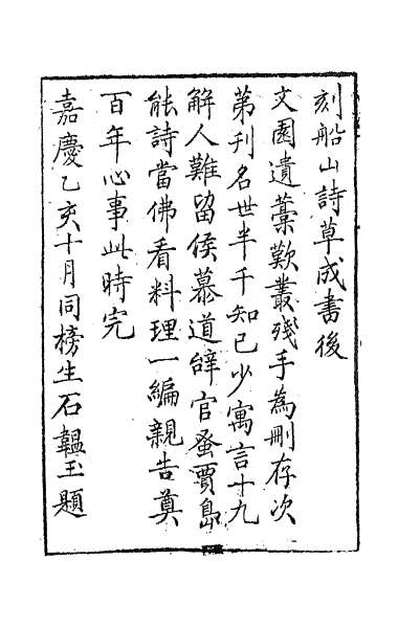 刻船山詩草成書後
文園遺藁歎叢殘手為刪存次
第刊名世半千知已少寓言十九
解人難留侯慕道辭官蚤賈島
能詩當佛看料理一編親告奠
百年心事此時完
嘉慶乙亥十月同榜生石韞玉題